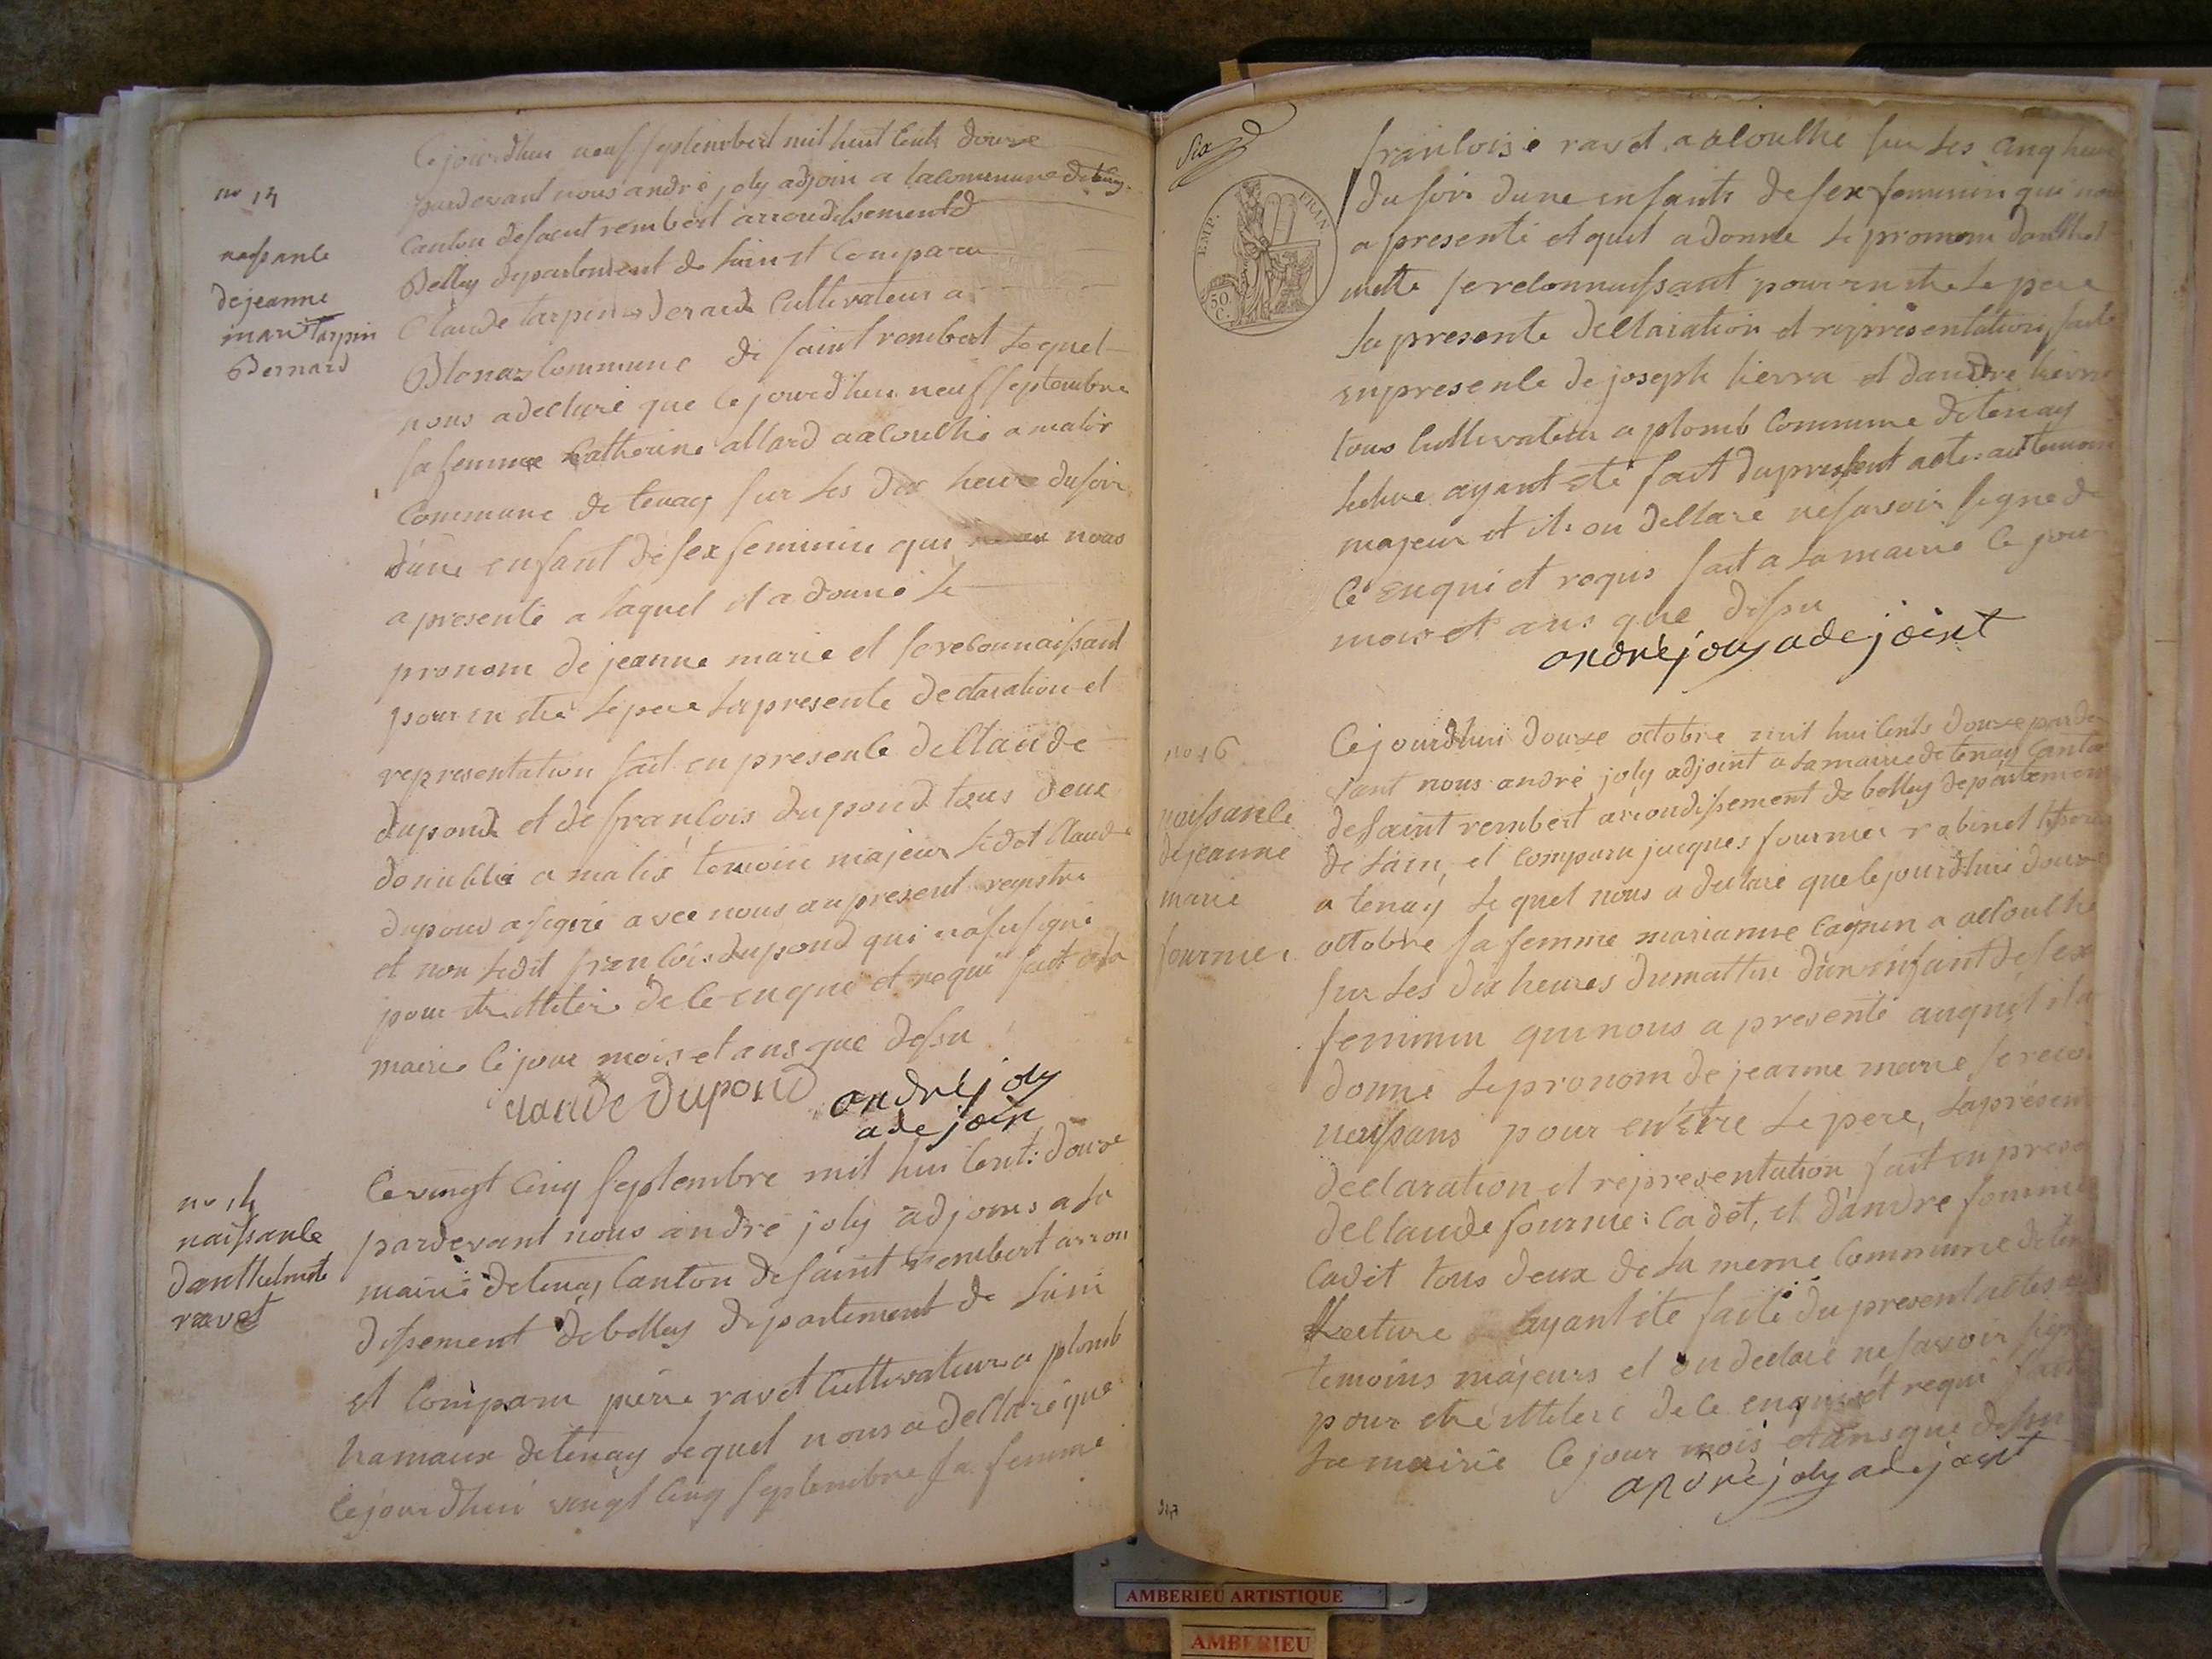 no 14
naissance
de jeanne
marie tarpin
Bernard
Cejourdhui neuf septembert mil huit cents douze
pardevant nous andré joly adjoin a lacommune de tenay
Canton desaint rembert arrondissement d
Belley departement de lain et Comparu
Claude tarpin Cultivateur a
Blanaz Commune de saint rembert lequel
nous adeclaré que cejourdhui neuf septembre
sa femme Catherine allard aacouchée a malix
Commune de tenay sur les dix heure dusoir
d'une enfant de sex feminin qui nous
a presenté a laquel il a donné le
pronom de jeanne marie et sereconnaissant
pour en etre lepere lapresente declaration et
representation fait en presence de Claude
dupond et de françois dupond tous deux
domicilié a malix temoin majeur ledot Claude
dupond asigné avec nous au present registre
et non ledit françois dupond qui
pour de ce enqui et requi fait a la
mairie ce jour mois et ans que dessu
claude Dupond andré joly
adejoin
naissance
danthelmete
ravet
Ce vingt cinq septembre mil hui cent: douze
pardevant nous andré joly adjoins a la
mairie de tenay Canton de saint rembert arron
dissement de belley departement de lain
et Comparu piere ravet Cultivateur a plomb
hamaux de tenay lequel nous a declaré que
cejourdhui vingt cinq septembre sa femme
Six
EMP. FRAN
50
C.
françoise ravet a acouché sur les cinq heur
du soir dune enfants de sex feminin qui nou
a presenté et quel a donné le pronom danthel
mette sereconnaissant pour en etre le pere
la presente declaration et representation faite
enpresence de joseph tierra et dandré
tous Cultivateur a plomb Commune de tenay
lecture ayant eté fait dupresent acte au temoin
majeur et ils on declaré nesavoir signe de
ce enqui et requis fait a la mairie ce jour
mois et ans que dessu
andré joly adejoint
no 16
naissance
de jeanne
marie
fournier
Cejourdhui douze octobre mil huicents douze parde
vant nous andré joly adjoint a la mairie de tenay Canton
desaint rembert arrondissement de belley departement
de lain, et comparu jacques fournier robinet
a tenay lequel nous a declaré que cejourdhui douze
octobre sa femme marianne Cagnin a accouché
sur les dix heures dumattin d'un enfant de sex
feminin qui nous a presenté auquel il a
donné le pronom de jeanne marie se reco
naissans pour en etre le pere, la présen
declaration et representation fait en prese
de Claude fournier Cadet, et d'andre
Cadit tous deux de la meme Commune de ten
Lecture ayant eté faite du present actes
temoins majeurs et on declaré ne savoir sign
pour de ce enquis et requi fait
la mairie ce jour mois et ans que dessu
andré joly adejoint
AMBERIEU ARTISTIQUE
AMBERIEU